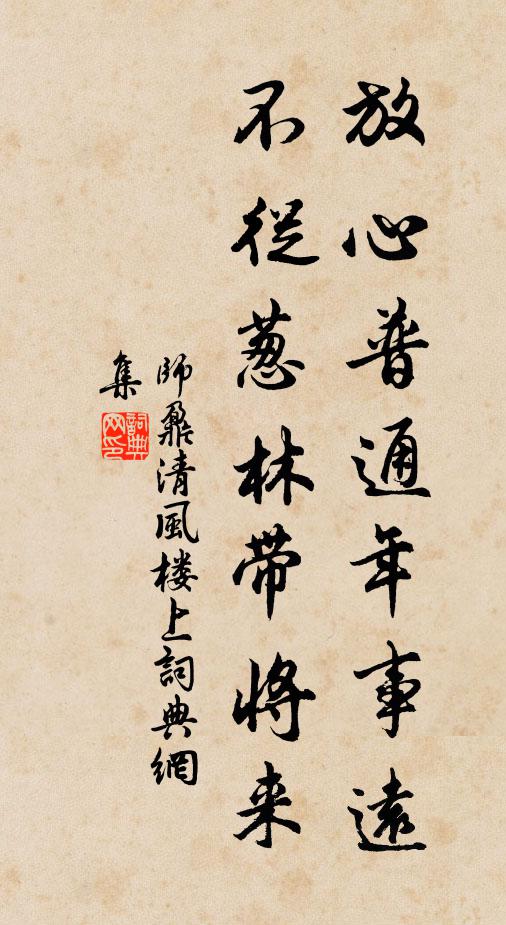 放心普通年事遠
不從葱林帶將来
師鼐清風楼上詞典網
集
詞典
网印